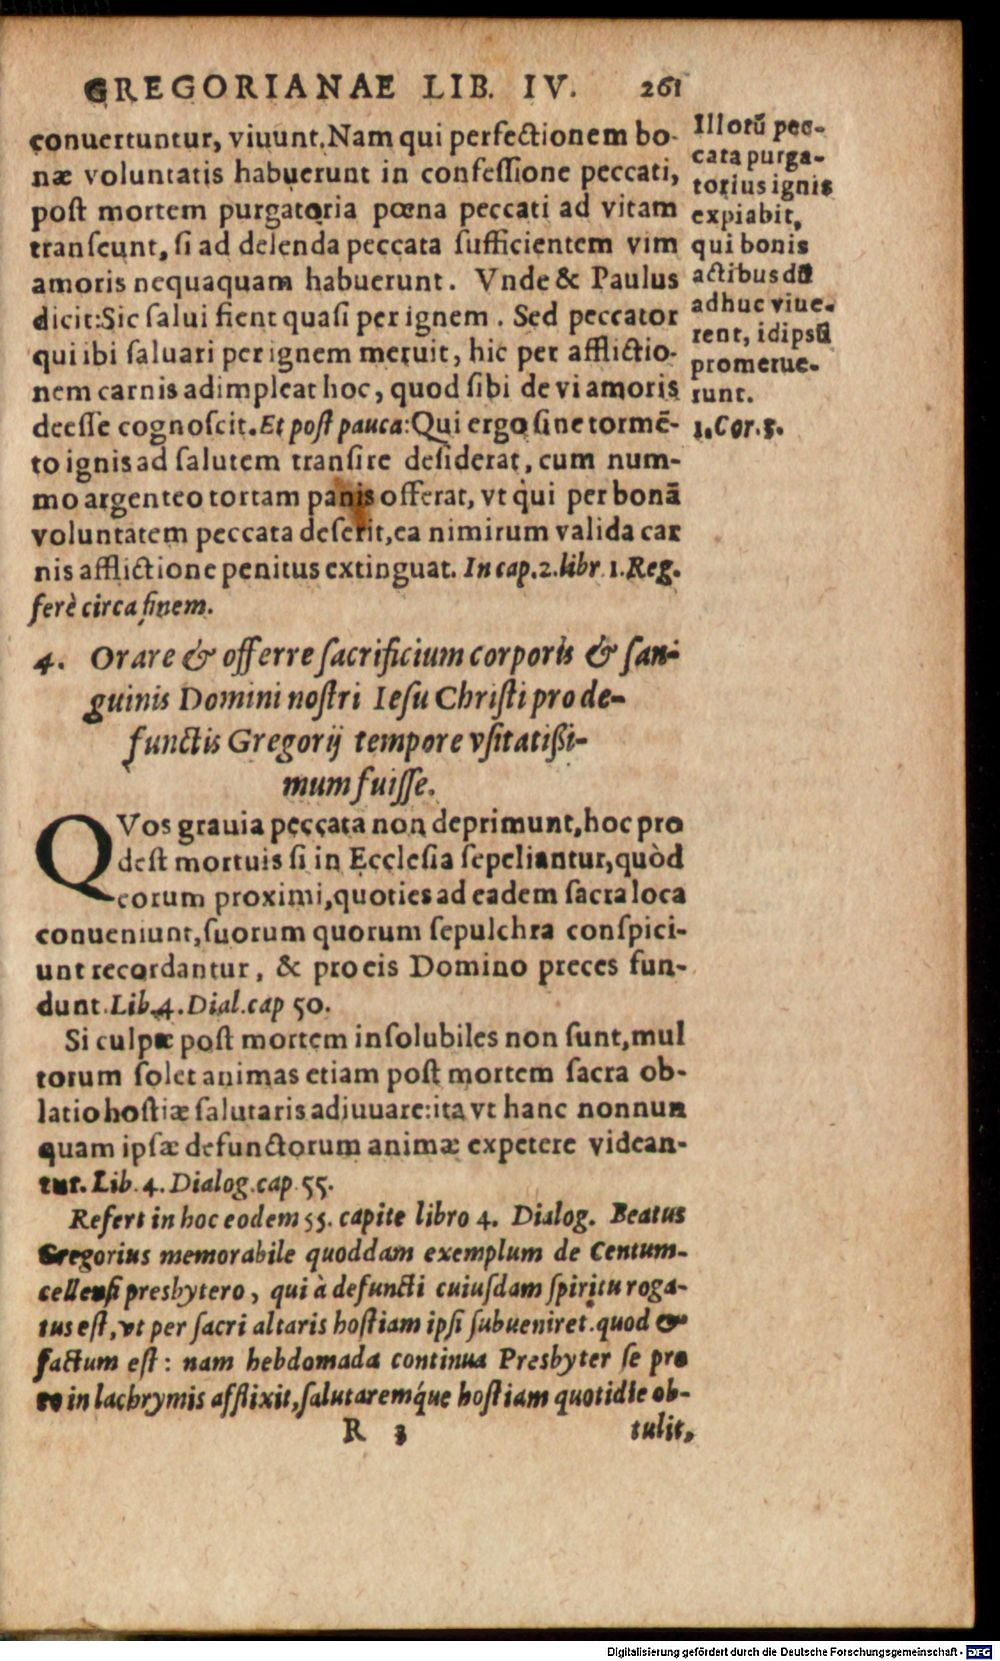 GREGORIANAE LIB. IV. 261
conuertuntur, viuunt. Nam qui perfectionem bo-
næ voluntatis habuerunt in confeſſione peccati,
poſt mortem purgatoria pœna peccati ad vitam
tranſeunt, ſi ad delenda peccata ſufficientem vim
amoris nequaquam habuerunt. Vnde & Paulus
dicit:Sic ſalui fient quaſi per ignem. Sed peccator
qui ibi ſaluari per ignem meruit, hic per afflictio-
nem carnis adimpleat hoc, quod ſibi de vi amoris
deeſſe cognoſcit. Et poſt pauca: Qui ergo ſine tormē-
to ignis ad ſalutem tranſire deſiderat, cum num-
mo argenteo tortam panis offerat, vt qui per bonā
voluntatem peccata deſerit, ea nimirum valida car
nis afflictione penitus extinguat. In cap. 2. libr. 1. Reg.
ferè circa finem.
Illorū pec-
cata purga-
torius ignis
expiabit,
qui bonis
actibus dū
adhuc viue-
rent, id ipsū
promerue-
runt.
1. Cor. 3.
4. Orare & offerre ſacrificium corporis & ſan-
guinis Domini noſtri Ieſu Chriſti pro de-
functis Gregorij tempore vſitatißi-
mum fuiſſe.
QVos grauia peccata non deprimunt, hoc pro
deſt mortuis ſi in Eccleſia ſepeliantur, quòd
eorum proximi, quoties ad eadem ſacra loca
conueniunt, ſuorum quorum ſepulchra conſpici-
unt recordantur, & pro eis Domino preces fun-
dunt. Lib. 4. Dial. cap 50.
Si culpæ poſt mortem inſolubiles non ſunt, mul
torum ſolet animas etiam poſt mortem ſacra ob-
latio hoſtiæ ſalutaris adiuuare: ita vt hanc nonnun
quam ipſæ defunctorum animæ expetere videan-
tur. Lib. 4. Dialog. cap. 55.
Refert in hoc eodem 55. capite libro 4. Dialog. Beatus
Gregorius memorabile quoddam exemplum de Centum-
cellenſi presbytero, qui à defuncti cuiuſdam ſpiritu roga-
tus eſt, vt per ſacri altaris hoſtiam ipſi ſubueniret. quod &
factum eſt: nam hebdomada continua Presbyter ſe pro
eo in lachrymis afflixit, ſalutaremq́ue hoſtiam quotidie ob-
R 3 tulit,
Digitalisierung gefördert durch die Deutsche Forschungsgemeinschaft - DFG